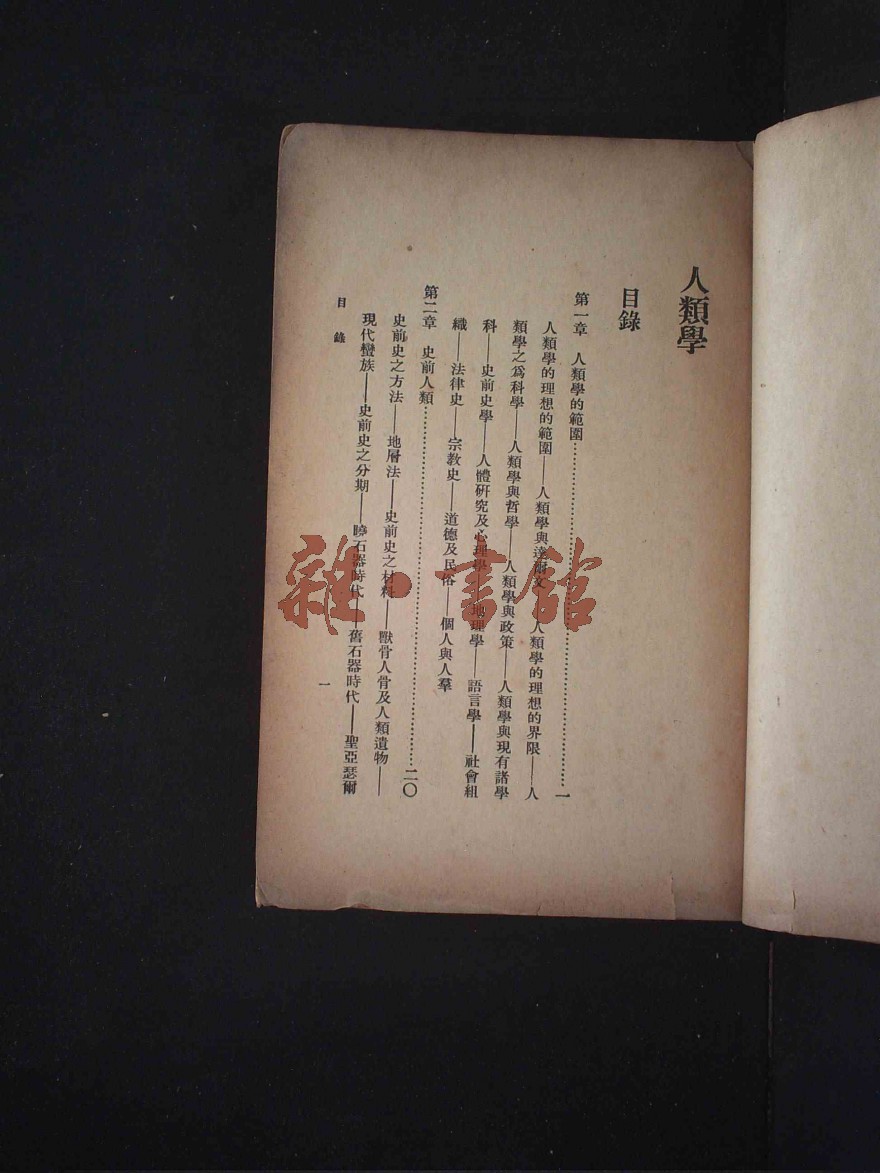 人類學
目錄
第一章　人類學的範圍……一
人類學的理想的範圍——人類學與達爾文——人類學的理想的界限——人
類學之爲科學——人類學與哲學——人類學與政策——人類學與現有諸學
科——史前史學——人體硏究及心理學——地理學——語言學——社會組
織——法律史——宗教史——道德及民俗——個人與人羣
第二章　史前人類……二〇
史前史之方法——地層法——史前史之材料——獸骨人骨及人類遺物——
現代蠻族——史前史之分期——曉石器時代——舊石器時代——聖亞瑟爾
目錄
一
雜·書館